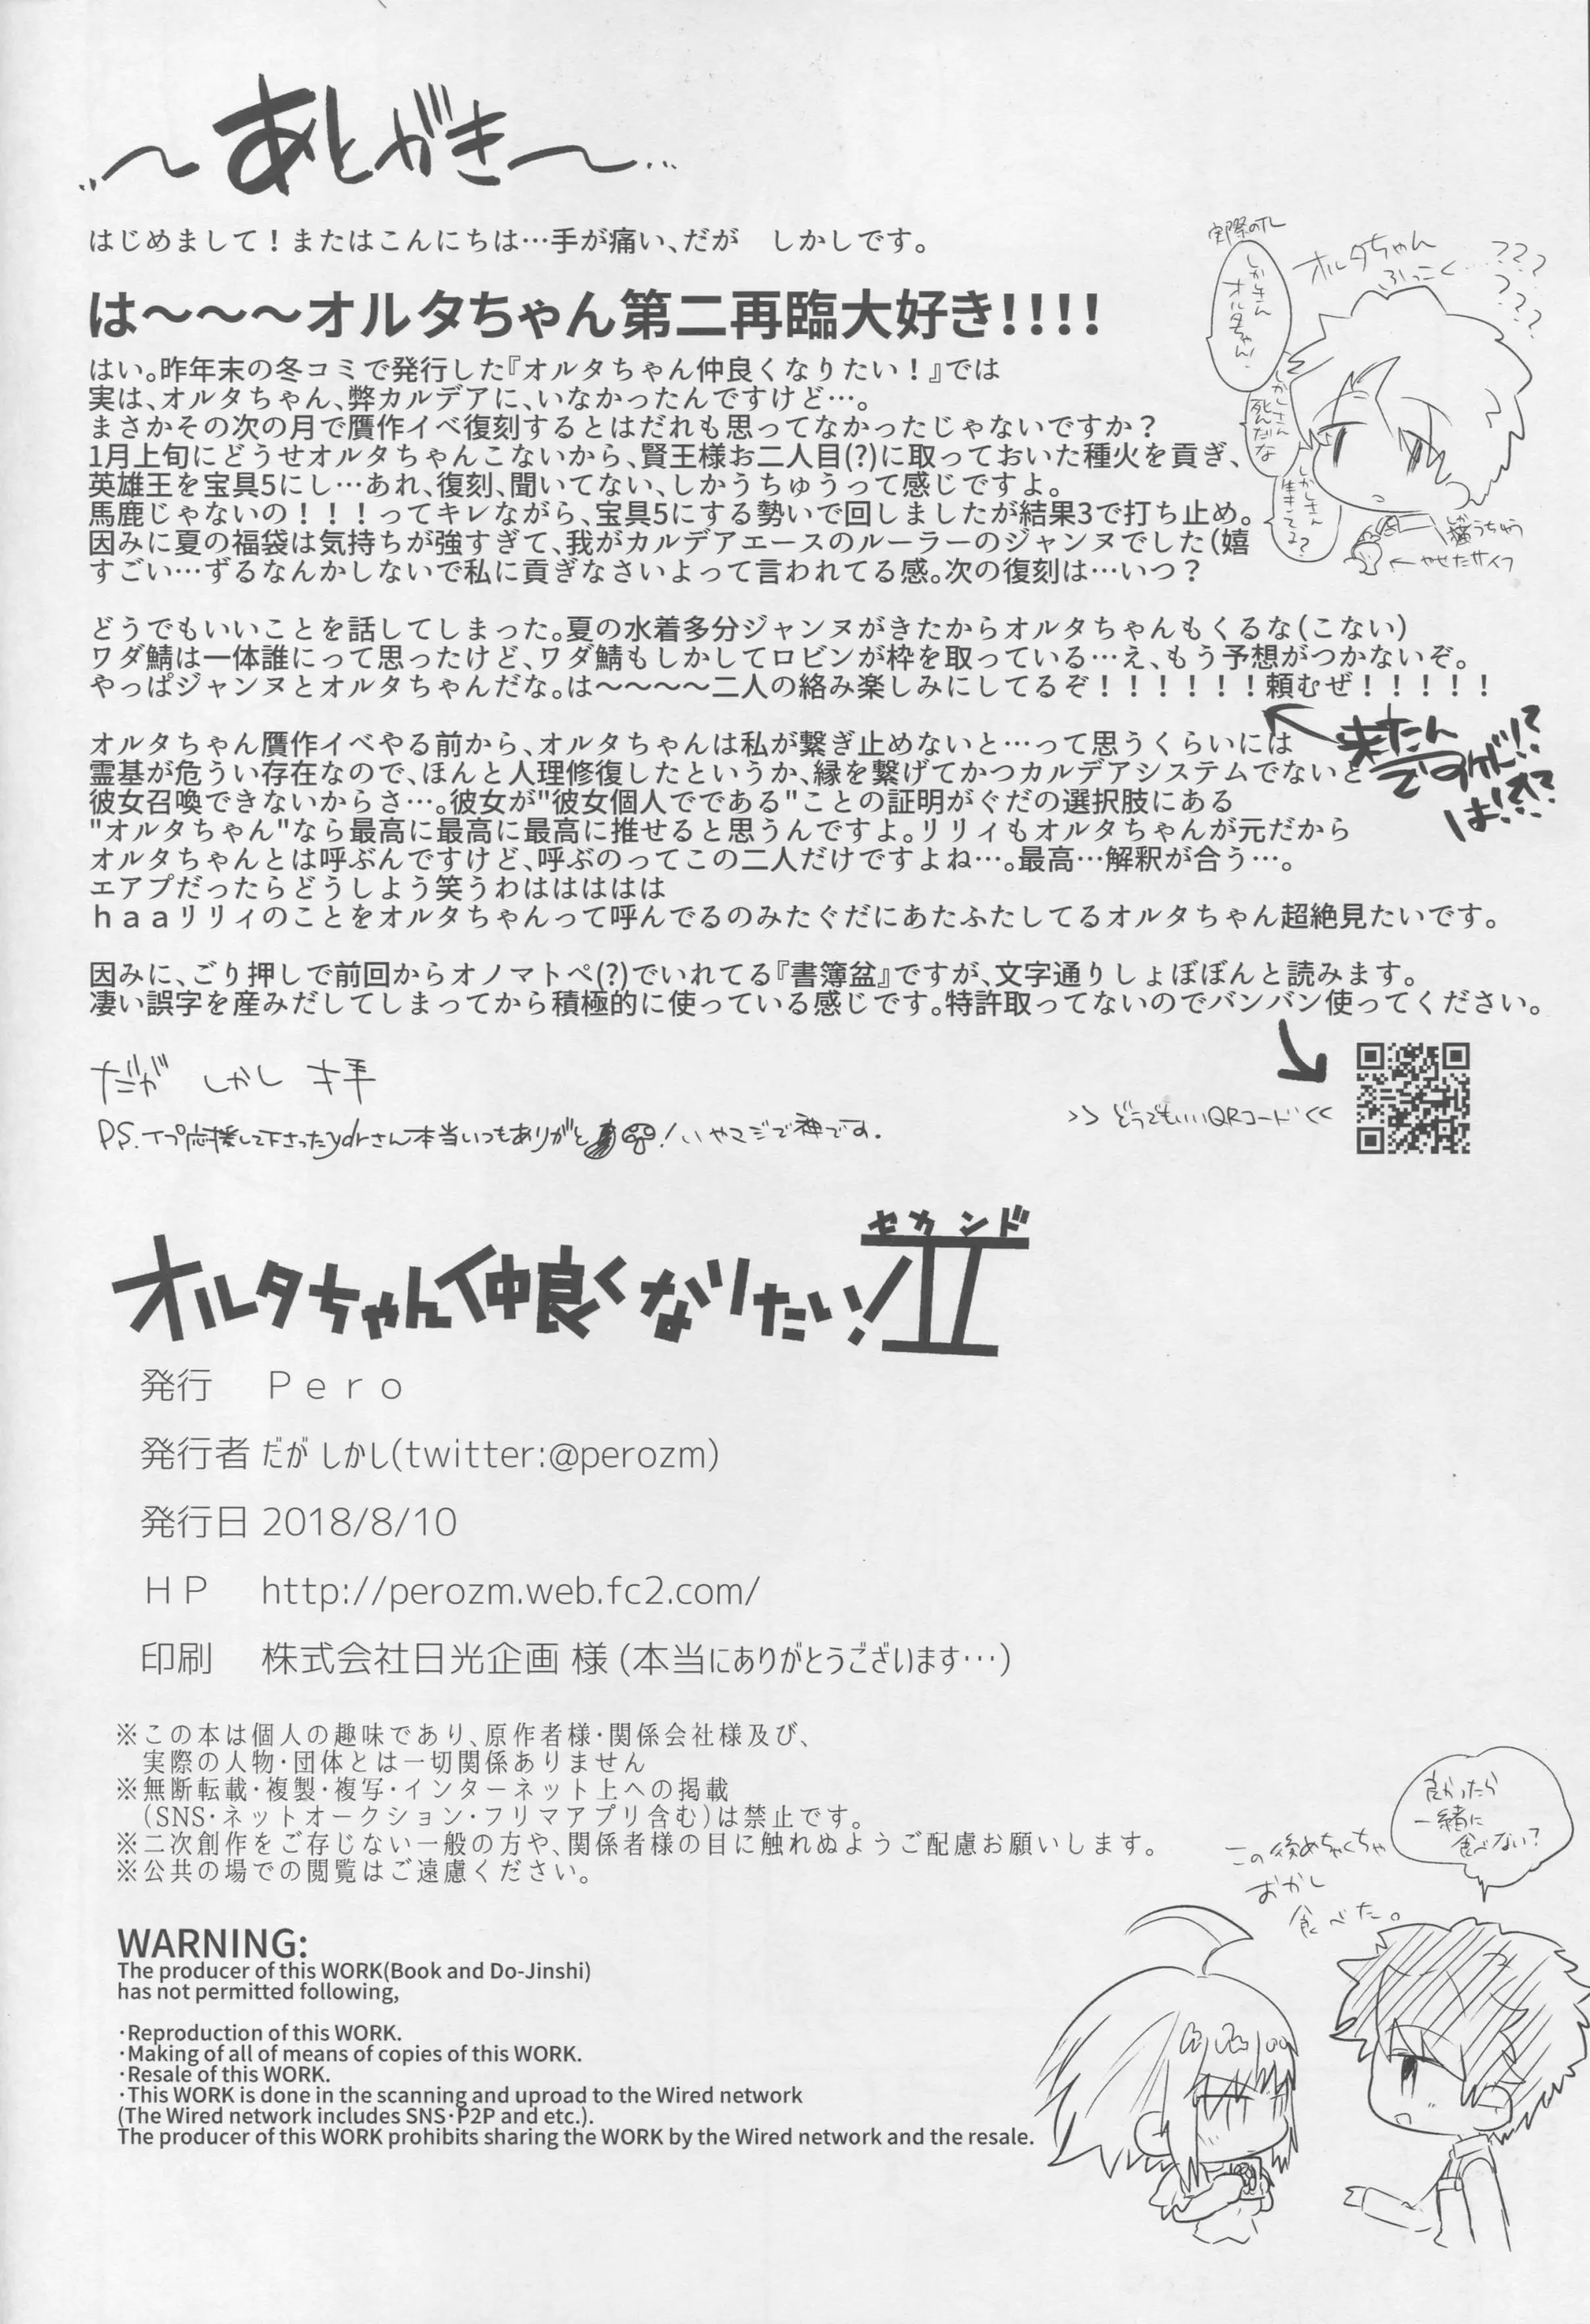 〜あとがき〜…
はじめまして！またはこんにちは…手が痛い、だが　しかしです。
は〜〜〜オルタちゃん第二再臨大好き!!!!
はい。昨年末の冬コミで発行した『オルタちゃん仲良くなりたい！』では
実は、オルタちゃん、弊カルデアに、いなかったんですけど…。
まさかその次の月で贋作イベ復刻するとはだれも思ってなかったじゃないですか？
1月上旬にどうせオルタちゃんこないから、賢王様お二人目(?)に取っておいた種火を貢ぎ、
英雄王を宝具5にし…あれ、復刻、聞いてない、しかうちゅうって感じですよ。
馬鹿じゃないの！！！ってキレながら、宝具5にする勢いで回しましたが結果3で打ち止め。
因みに夏の福袋は気持ちが強すぎて、我がカルデアエースのルーラーのジャンヌでした（嬉
すごい…ずるなんかしないで私に貢ぎなさいよって言われてる感。次の復刻は…いつ？
実際のTL
しかしさん
オルタちゃん！
しかしさん
死んだな
しかしさん
生きてる?
オルタちゃん
ふっこく…???
???
←やせたサイフ
どうでもいいことを話してしまった。夏の水着多分ジャンヌがきたからオルタちゃんもくるな（こない）
ワダ鯖は一体誰にって思ったけど、ワダ鯖もしかしてロビンが枠を取っている…え、もう予想がつかないぞ。
やっぱジャンヌとオルタちゃんだな。は〜〜〜〜二人の絡み楽しみにしてるぞ！！！！！！頼むぜ！！！！！
来たん
ですけど!!??
は!!??
オルタちゃん贋作イベやる前から、オルタちゃんは私が繋ぎ止めないと…って思うくらいには
霊基が危うい存在なので、ほんと人理修復したというか、縁を繋げてかつカルデアシステムでないと
彼女召喚できないからさ…。彼女が"彼女個人でである"ことの証明がぐだの選択肢にある
"オルタちゃん"なら最高に最高に最高に推せると思うんですよ。リリィもオルタちゃんが元だから
オルタちゃんとは呼ぶんですけど、呼ぶのってこの二人だけですよね…。最高…解釈が合う…。
エアプだったらどうしよう笑うわははははは
ｈａａリリィのことをオルタちゃんって呼んでるのみたぐだにあたふたしてるオルタちゃん超絶見たいです。
因みに、ごり押しで前回からオノマトペ(?)でいれてる『書簿盆』ですが、文字通りしょぼぼんと読みます。
凄い誤字を産みだしてしまってから積極的に使っている感じです。特許取ってないのでバンバン使ってください。
だが しかし 拝
>> どうでもいいQRコード <<
P.S.イプ応援して下さったydrさん本当いつもありがと！いやマジで神です。
セカンド
オルタちゃん仲良くなりたい！II
発行　Ｐｅｒｏ
発行者 だが しかし(twitter:@perozm)
発行日 2018/8/10
ＨＰ　http://perozm.web.fc2.com/
印刷　株式会社日光企画 様 (本当にありがとうございます…)
※この本は個人の趣味であり、原作者様・関係会社様及び、
実際の人物・団体とは一切関係ありません
※無断転載・複製・複写・インターネット上への掲載
（SNS・ネットオークション・フリマアプリ含む）は禁止です。
※二次創作をご存じない一般の方や、関係者様の目に触れぬようご配慮お願いします。
※公共の場での閲覧はご遠慮ください。
良かったら
一緒に
食べない？
この後めちゃくちゃ
おかし
食べた。
WARNING:
The producer of this WORK(Book and Do-Jinshi)
has not permitted following,
・Reproduction of this WORK.
・Making of all of means of copies of this WORK.
・Resale of this WORK.
・This WORK is done in the scanning and uproad to the Wired network
(The Wired network includes SNS・P2P and etc.).
The producer of this WORK prohibits sharing the WORK by the Wired network and the resale.